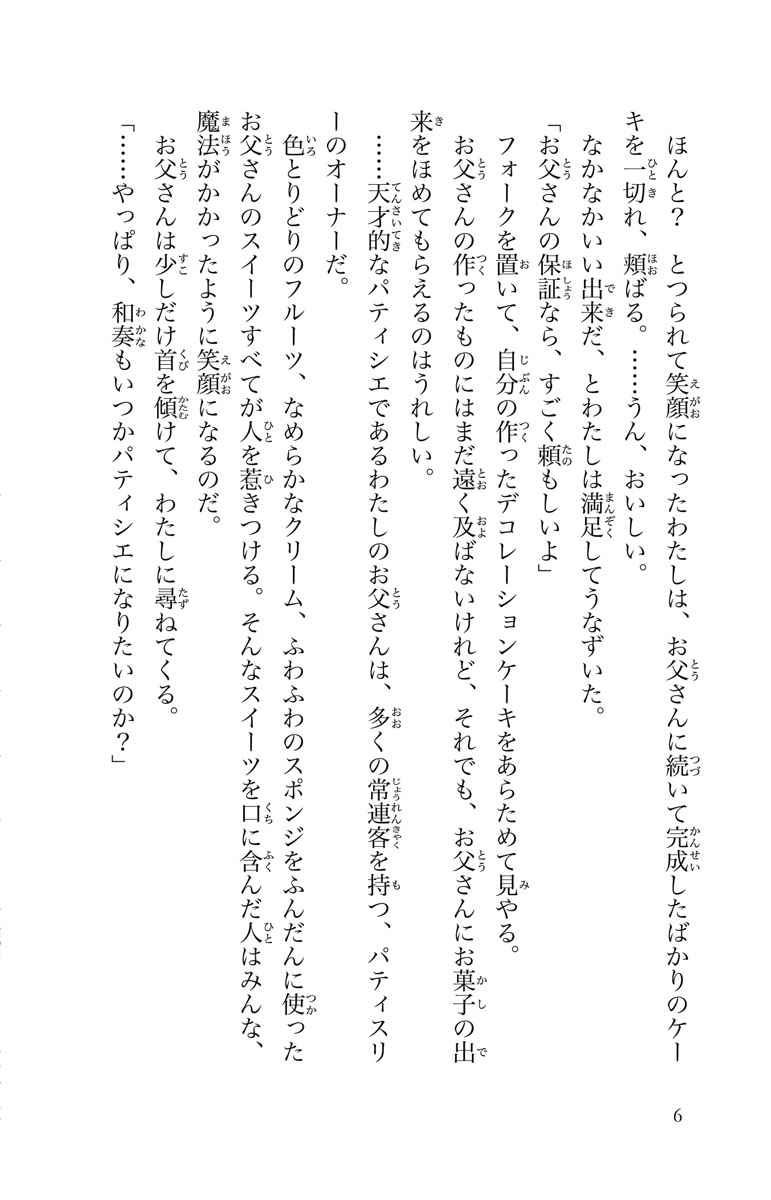 ほんと？　とつられて笑顔になったわたしは、お父さんに続いて完成したばかりのケー
キを一切れ、頬ばる。……うん、おいしい。
なかなかいい出来だ、とわたしは満足してうなずいた。
「お父さんの保証なら、すごく頼もしいよ」
フォークを置いて、自分の作ったデコレーションケーキをあらためて見やる。
お父さんの作ったものにはまだ遠く及ばないけれど、それでも、お父さんにお菓子の出
来をほめてもらえるのはうれしい。
……天才的なパティシエであるわたしのお父さんは、多くの常連客を持つ、パティスリ
ーのオーナーだ。
色とりどりのフルーツ、なめらかなクリーム、ふわふわのスポンジをふんだんに使った
お父さんのスイーツすべてが人を惹きつける。そんなスイーツを口に含んだ人はみんな、
魔法がかかったように笑顔になるのだ。
お父さんは少しだけ首を傾けて、わたしに尋ねてくる。
「……やっぱり、和奏もいつかパティシエになりたいのか？」
6